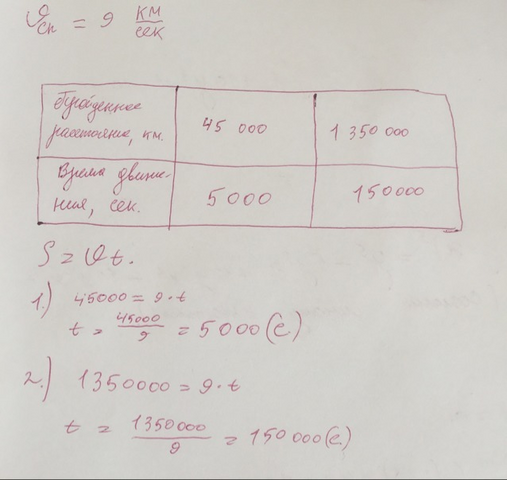 𝒱сп = 9 км/сек
Пройденное расстояние, км. 45 000 1 350 000
Время движения, сек. 5000 150000
S = 𝒱t.
1.) 45000 = 9·t
t = 45000/9 = 5000(с)
2.) 1350000 = 9·t
t = 1350000/9 = 150000(с)